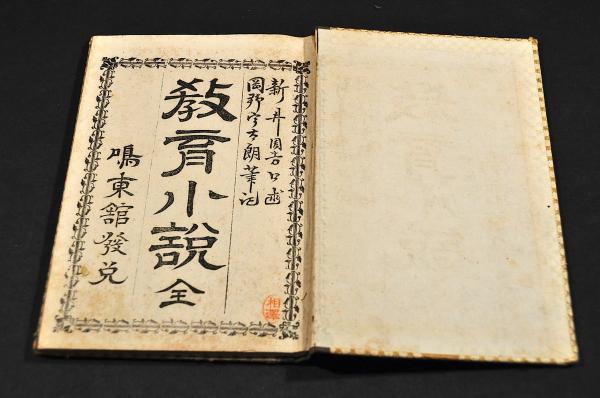 新井圓吉口述
岡野宇太朗筆記
敎育小說全
鳴東舘發兌
相澤